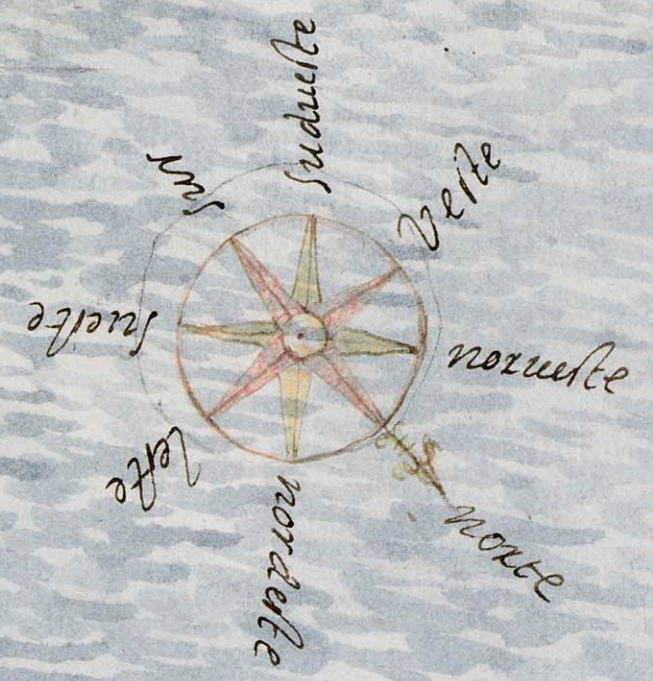 Sudueste
Veste
norueste
norte
nordeste
leste
sueste
sul